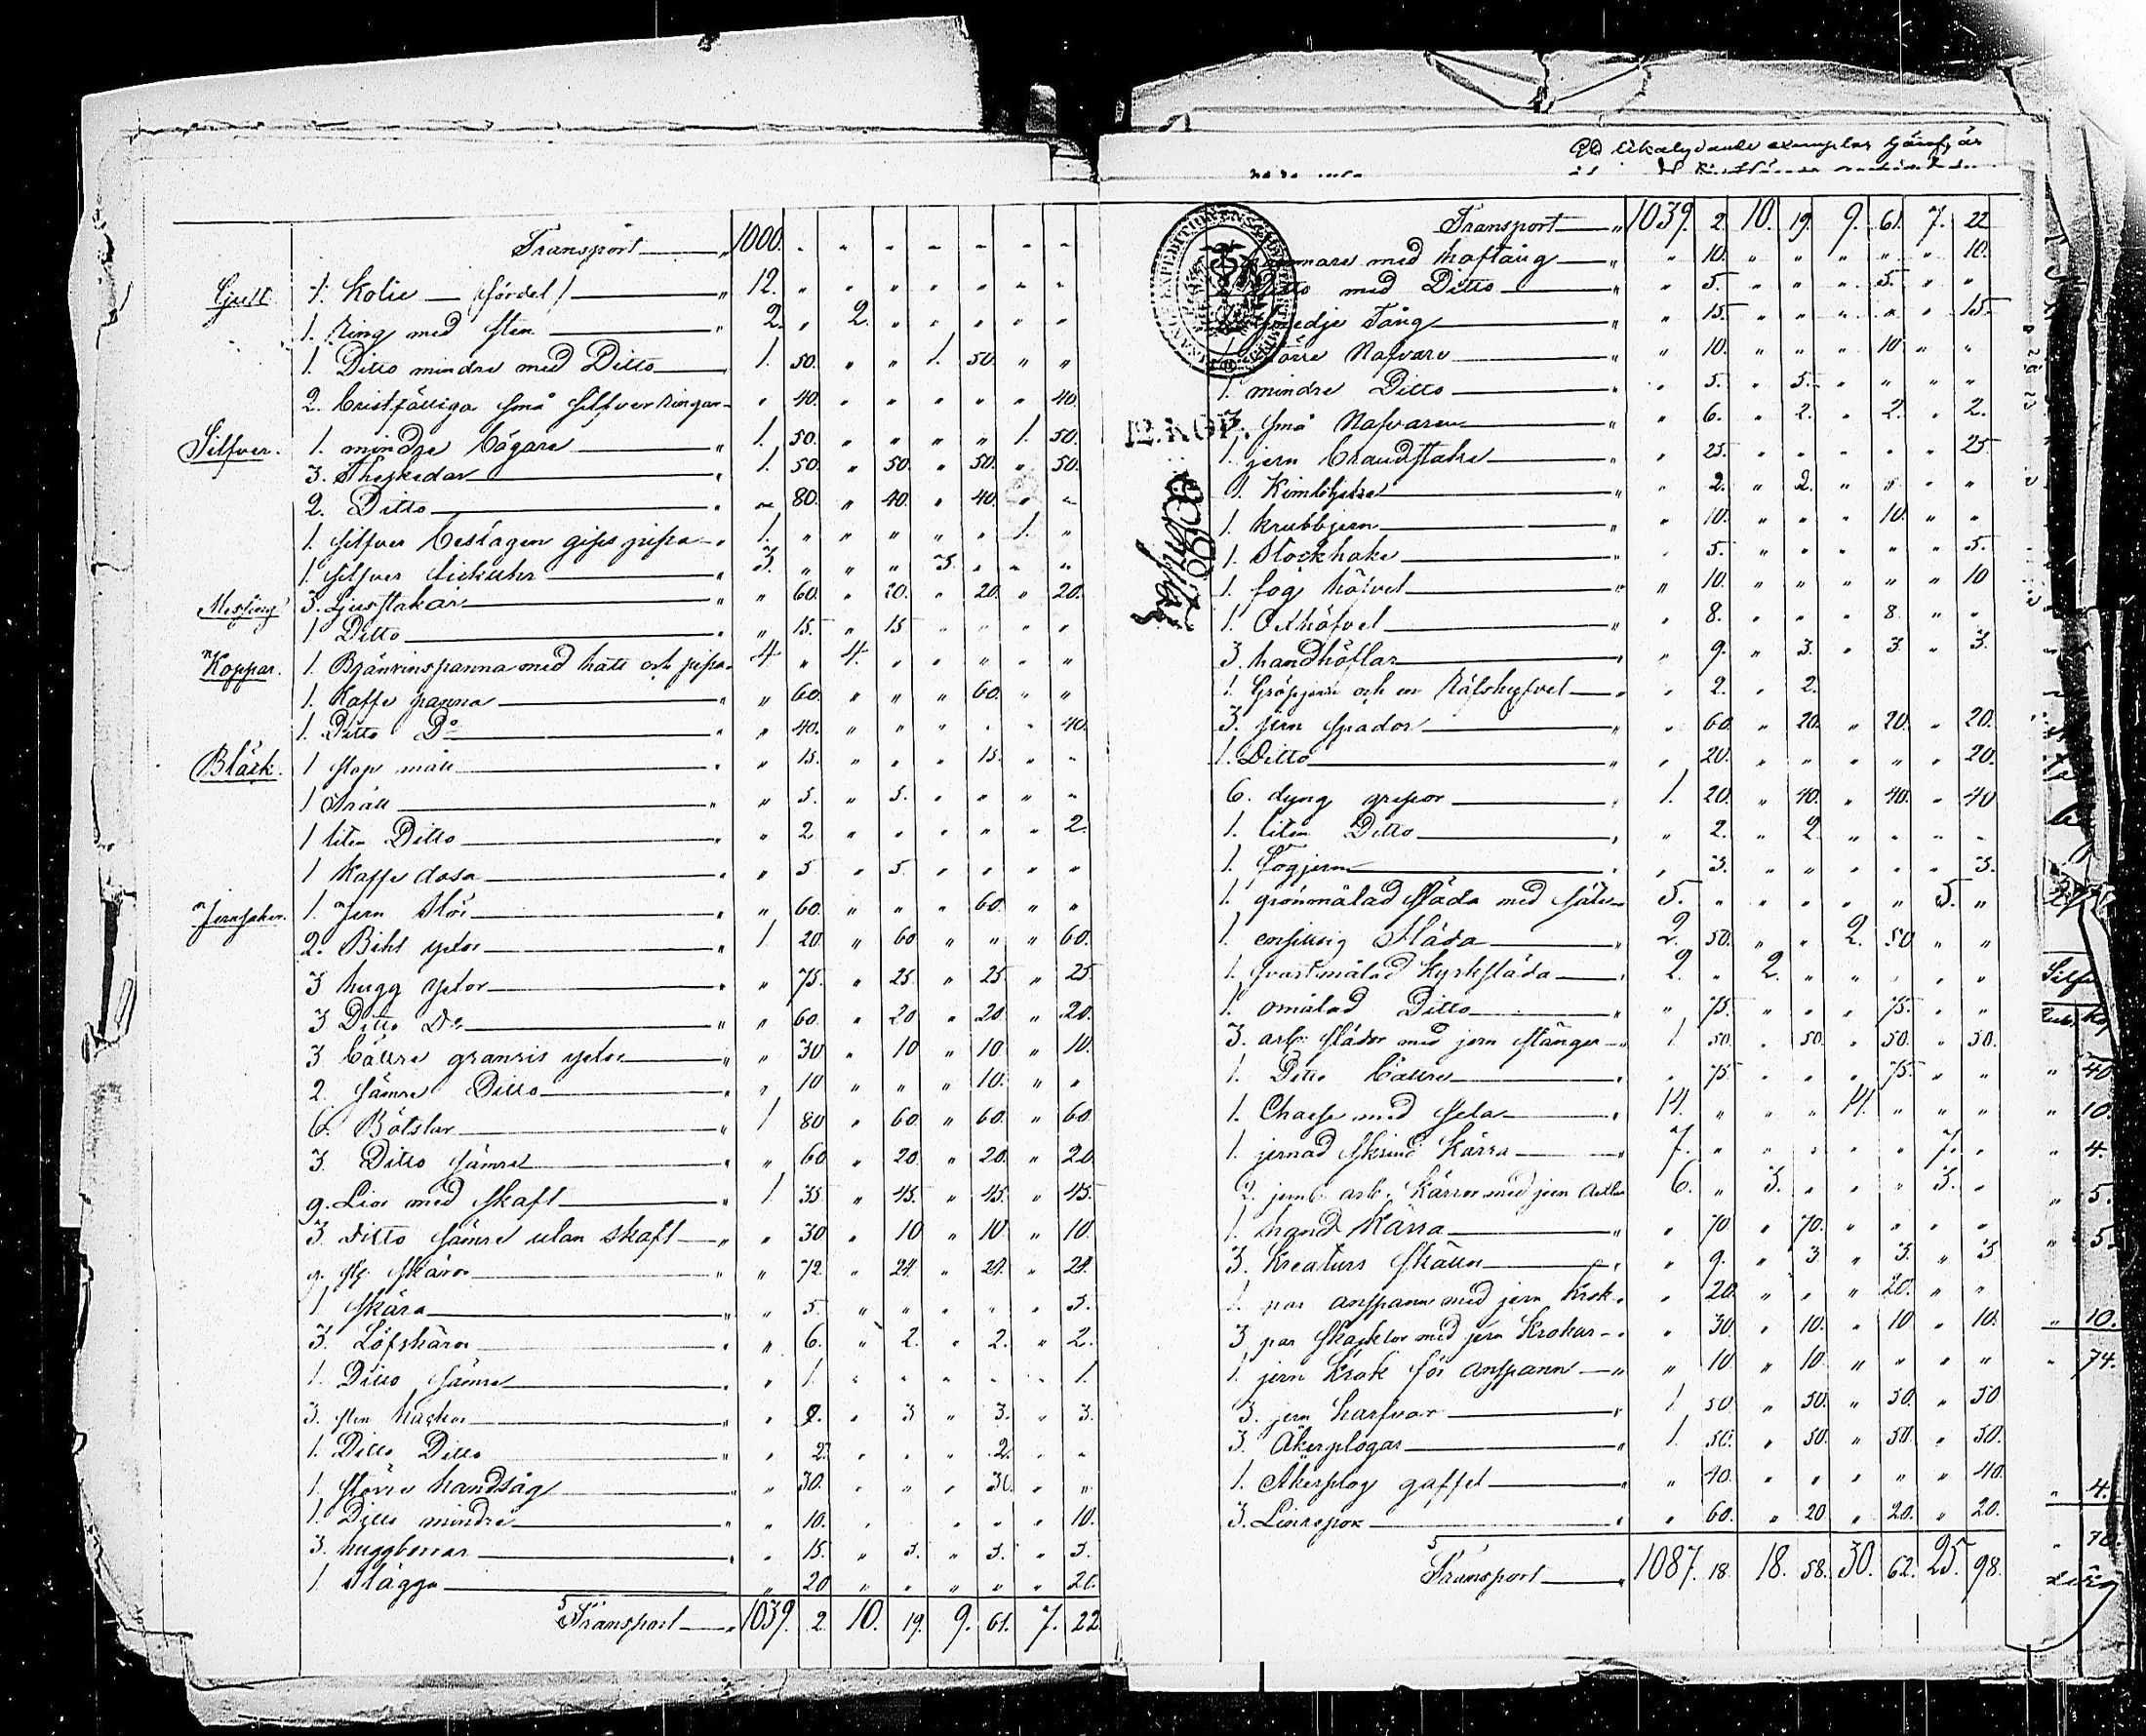 Transport — " 1000. - - - - - - -
Gull 1. Kolie — fördel / — " 12. " " " " " " "
1. Ring med sten — " 2. " 2. " " " " "
1. Ditto mindre med Ditto — 1. 50. " " 1. 50. " "
2. bristfälliga små silfver ringar - " 40. " " " " " 40.
Silfver. 1. mindre bägare — " 1. 50. " " " " 1. 50.
3. Theskedar — " 1. 50. " 50. " 50. " 50.
2. Ditto — " " 80. " 40. " 40. " "
1. silfver beslagen gips pipa - " 1. " " " " " 1. "
1. silfver fickuhr — " 3. " " " 3. " " "
Messing 3. Ljusstakar — " " 60. " 20. " 20. " 20.
1 Ditto — " " 15. " 15 " " " "
Koppar. 1. Brännvinspanna med hatt och pipa - 4 " 4. " " " " "
1. Kaffe panna — " " 60. " " " 60. " "
1. Ditto Do — " " 40. " " " " " 40.
Bläck. 1 stop mått — " " 15. " " " 15. " "
1 Tratt — " " 5. " 5. " " " "
1 liten Ditto — " " 2 " " " " " 2.
1 Kaffe dosa — " " 5 " 5. " " " "
Jernsaker. 1. Jern Stör — " " 60. " " " 60. " "
2. Bihl yxor — " 1. 20. " 60 " " " 60.
3 hugg yxor — " " 75. " 25. " 25. " 25
3 Ditto Do — " " 60. " 20 " 20 " 20.
3 bättre granris yxor — " " 30 " 10 " 10. " 10.
2. sämre Ditto — " " 10 " " " 10. " "
6. Bötslar — " 1 80 " 60. " 60. " 60
3 Ditto sämre — " " 60 " 20. " 20. " 20
9. Liar med skaft — " 1 35 " 45. " 45. " 45.
3 Ditto sämre utan skaft — " " 30 " 10 " 10 " 10.
9. Skäror — " " 72. " 24. " 24. " 24.
1 Skära — " " 5. " " " " " 5.
3. Löfskäror — " " 6. " 2. " 2. " 2.
1. Ditto sämre — " " 1. " " " " " 1.
3. sten hackor — " " 9. " 3 " 3. " 3.
1. Ditto Ditto — " " 2. " " " 2. " "
1. större handsåg — " " 30. " " " 30. " "
1. Ditto mindre — " " 10. " " " " " 10.
3. huggborrar — " " 15. " 5. " 5. " 5.
1 Slägga — " 20 " " " " " 20.
Transport — " 1039. 2. 10. 19. 9. 61. 7. 22.
likalydande exemplar
Transport — " 1039. 2. 10. 19. 9. 61. 7. 22
hammare med hoftång — " " 10. " " " " " 10.
Ditto med Ditto — " " 5. " " " 5. " "
smedje Tång — " " 15. " " " " " 15.
1 större Nafvare — " " 10. " " " 10 " "
1. mindre Ditto — " " 5. " 5. " " " "
12. KOP.
3. små Nafvaren — " " 6. " 2. " 2. " 2.
1. jern brandstake — " " 25. " " " " " 25
1. — " " 2. " 2. " " " "
1. krubbjern — " " 10. " " " 10. " "
1. Stockhake — " " 5. " " " " " 5.
1. fog höfvel — " " 10. " " " " " 10
1. Oxhöfvel — " " 8. " " " 8. " "
3. handhöflar — " " 9. " 3. " 3. " 3.
1. Gröpjern och en — " " 2. " 2.
3. jern spador — " " 60. " 20. " 20. " 20.
1. Ditto — " " 20. " " " " " 20.
6. dyng grepor — " 1. 20. " 40. " 40. " 40
1. liten Ditto — " " 2. " 2 " " " "
1. Fogjern — " " 3. " " " " " 3.
1. grönmålad släda med säte - 5. " " " " " 5. "
1. ensitsig Släda — " 2. 50. " " 2. 50 " "
1. svartmålad kyrksläda — " 2. " 2. " " " " "
1. omålad Ditto — " " 75. " " " 75. " "
3. arb. slädor med jern stänger - " 1 50. " 50. " 50. " 50.
1. Ditto bättre — " " 75. " " " 75. " "
1. Chaese med sela — " 14. " " " 14. " " "
1. jernad skrind Kärra — " 7. " " " " " 7. "
2. jernb. arb. Kärror med jern axlar 6. " 3. " " " 3. "
1. hand Kärra — " " 70 " 70. " " " "
3. Kreaturs skällor — " " 9. " 3 " 3. " 3
1. par anspann med jern krok - " " 20. " " " 20. " "
3 par skacklor med jern krokar - " " 30 " 10. " 10 " 10.
1. jern krok för anspann — " " 10 " 10. " " " "
3. jern harfvar — " 1 50. " 50. " 50. " 50
3. Åkerplogar — " 1. 50. " 50. " 50 " 50.
1. Åkerplog gaffel — " " 40. " " " " " 40.
3. — " " 60. " 20 " 20. " 20.
Transport — " 1087. 18. 18. 58. 30. 62. 25. 98.
Silfv
Rub. Kop
" 40
" 10.
" 4.
" 5.
" 5.
" 10.
" 74.
" 4.
" 70.